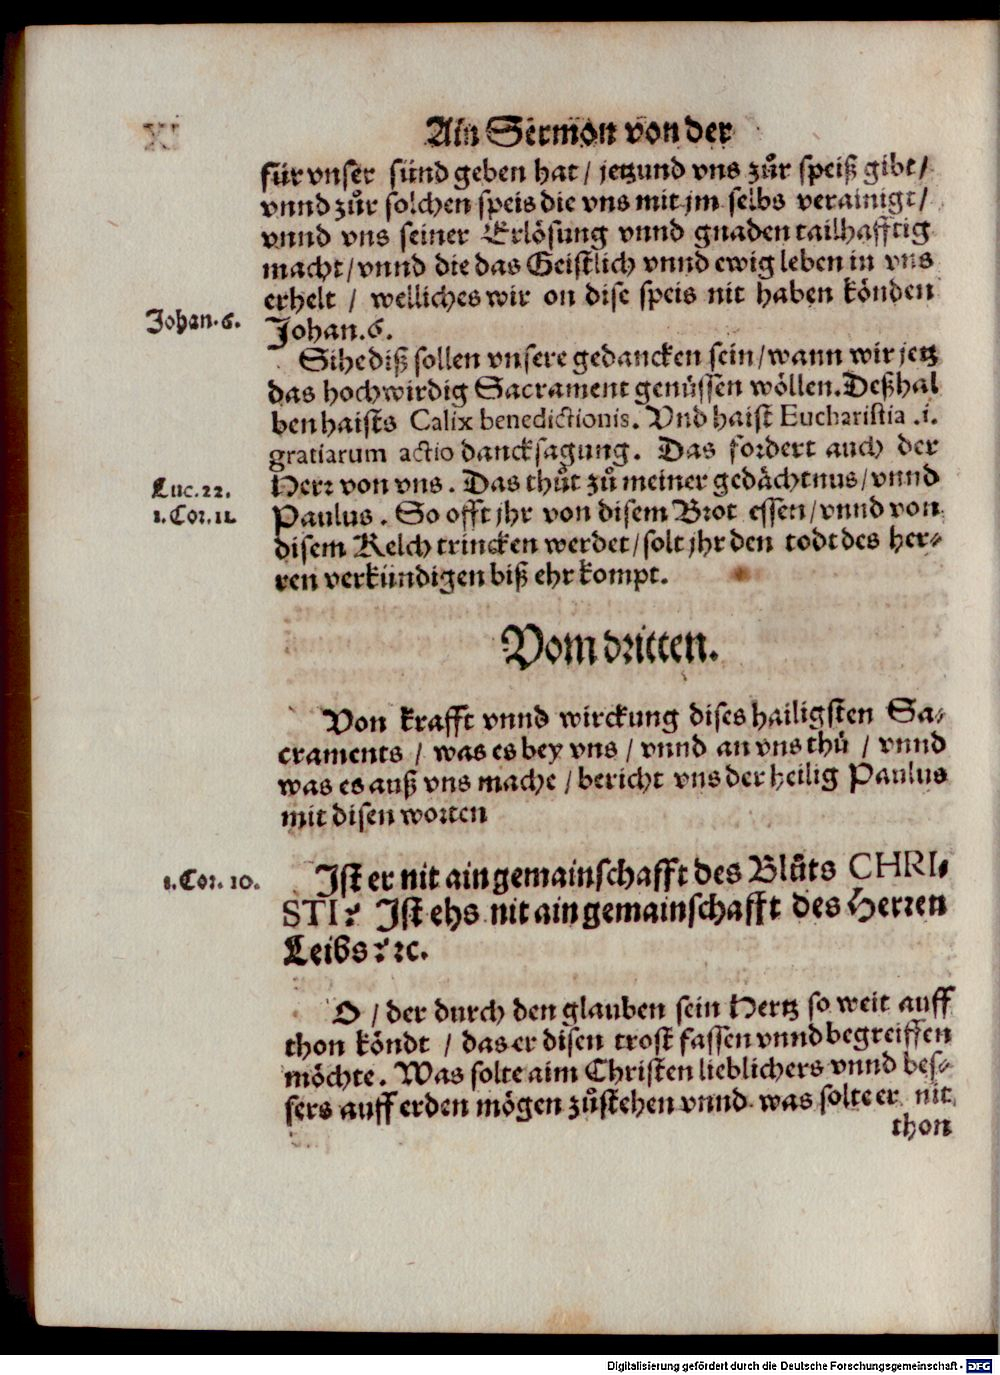 Ain Sermon von der
für vnser sünd geben hat / jetzund vns zůr speiß gibt /
vnnd zůr solchen speis die vns mit jm selbs verainigt /
vnnd vns seiner Erlösung vnnd gnaden tailhafftig
macht / vnnd die das Geistlich vnnd ewig leben in vns
erhelt / welliches wir on dise speis nit haben könden
Johan. 6.
Johan. 6.
Sihe diß sollen vnsere gedancken sein / wann wir jetz
das hochwirdig Sacrament genüssen wöllen. Deßhal
ben haists Calix benedictionis. Vnd haist Eucharistia .i.
gratiarum actio dancksagung. Das fordert auch der
Luc. 22.
Herr von vns. Das thůt zů meiner gedächtnus / vnnd
1. Cor. 11.
Paulus. So offt jhr von disem Brot essen / vnnd von
disem Kelch trincken werdet / solt jhr den todt des her-
ren verkündigen biß ehr kompt.
Vom dritten.
Von krafft vnnd wirckung dises hailigsten Sa-
craments / was es bey vns / vnnd an vns thů / vnnd
was es auß vns mache / bericht vns der heilig Paulus
mit disen worten
1. Cor. 10.
Ist er nit ain gemainschafft des Blůts CHRI-
STI? Ist ehs nit ain gemainschafft des Herren
Leibs? ꝛc.
O / der durch den glauben sein Hertz so weit auff
thon köndt / das er disen trost fassen vnnd begreiffen
möchte. Was solte aim Christen lieblichers vnnd bes-
sers auff erden mögen zůstehen vnnd was solte er nit
thon
Digitalisierung gefördert durch die Deutsche Forschungsgemeinschaft - DFG